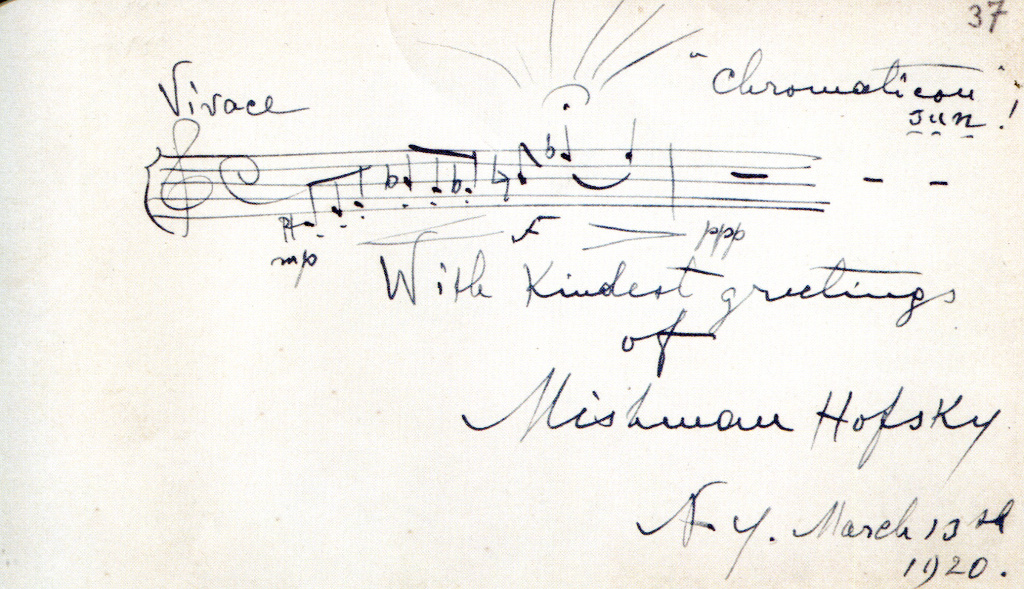 37
Vivace
"Chromaticon"
sun!
mp
f
ppp
With Kindest greetings
of
Mishman Hofsky
N. Y. March 13th
1920.